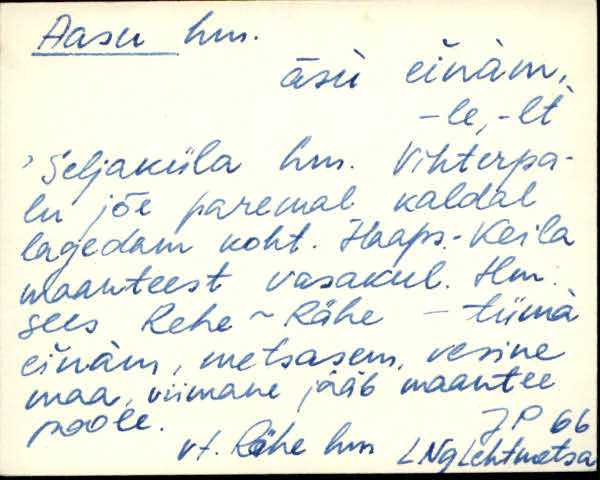 Aasu hm.
āsù eìnàm,
-le, -lt
Šeljaküla hm. Vihterpa-
lu jõe paremal kaldal
lagedam koht. Haaps.-Keila
maanteest vasakul. Hm.
sees Rehe ~ Rähe – tümà
eìnàm, metsasem, vesine
maa, viimane jääb maantee
poole.
JP 66
vt. Rähe hm LNg Lehtmetsa